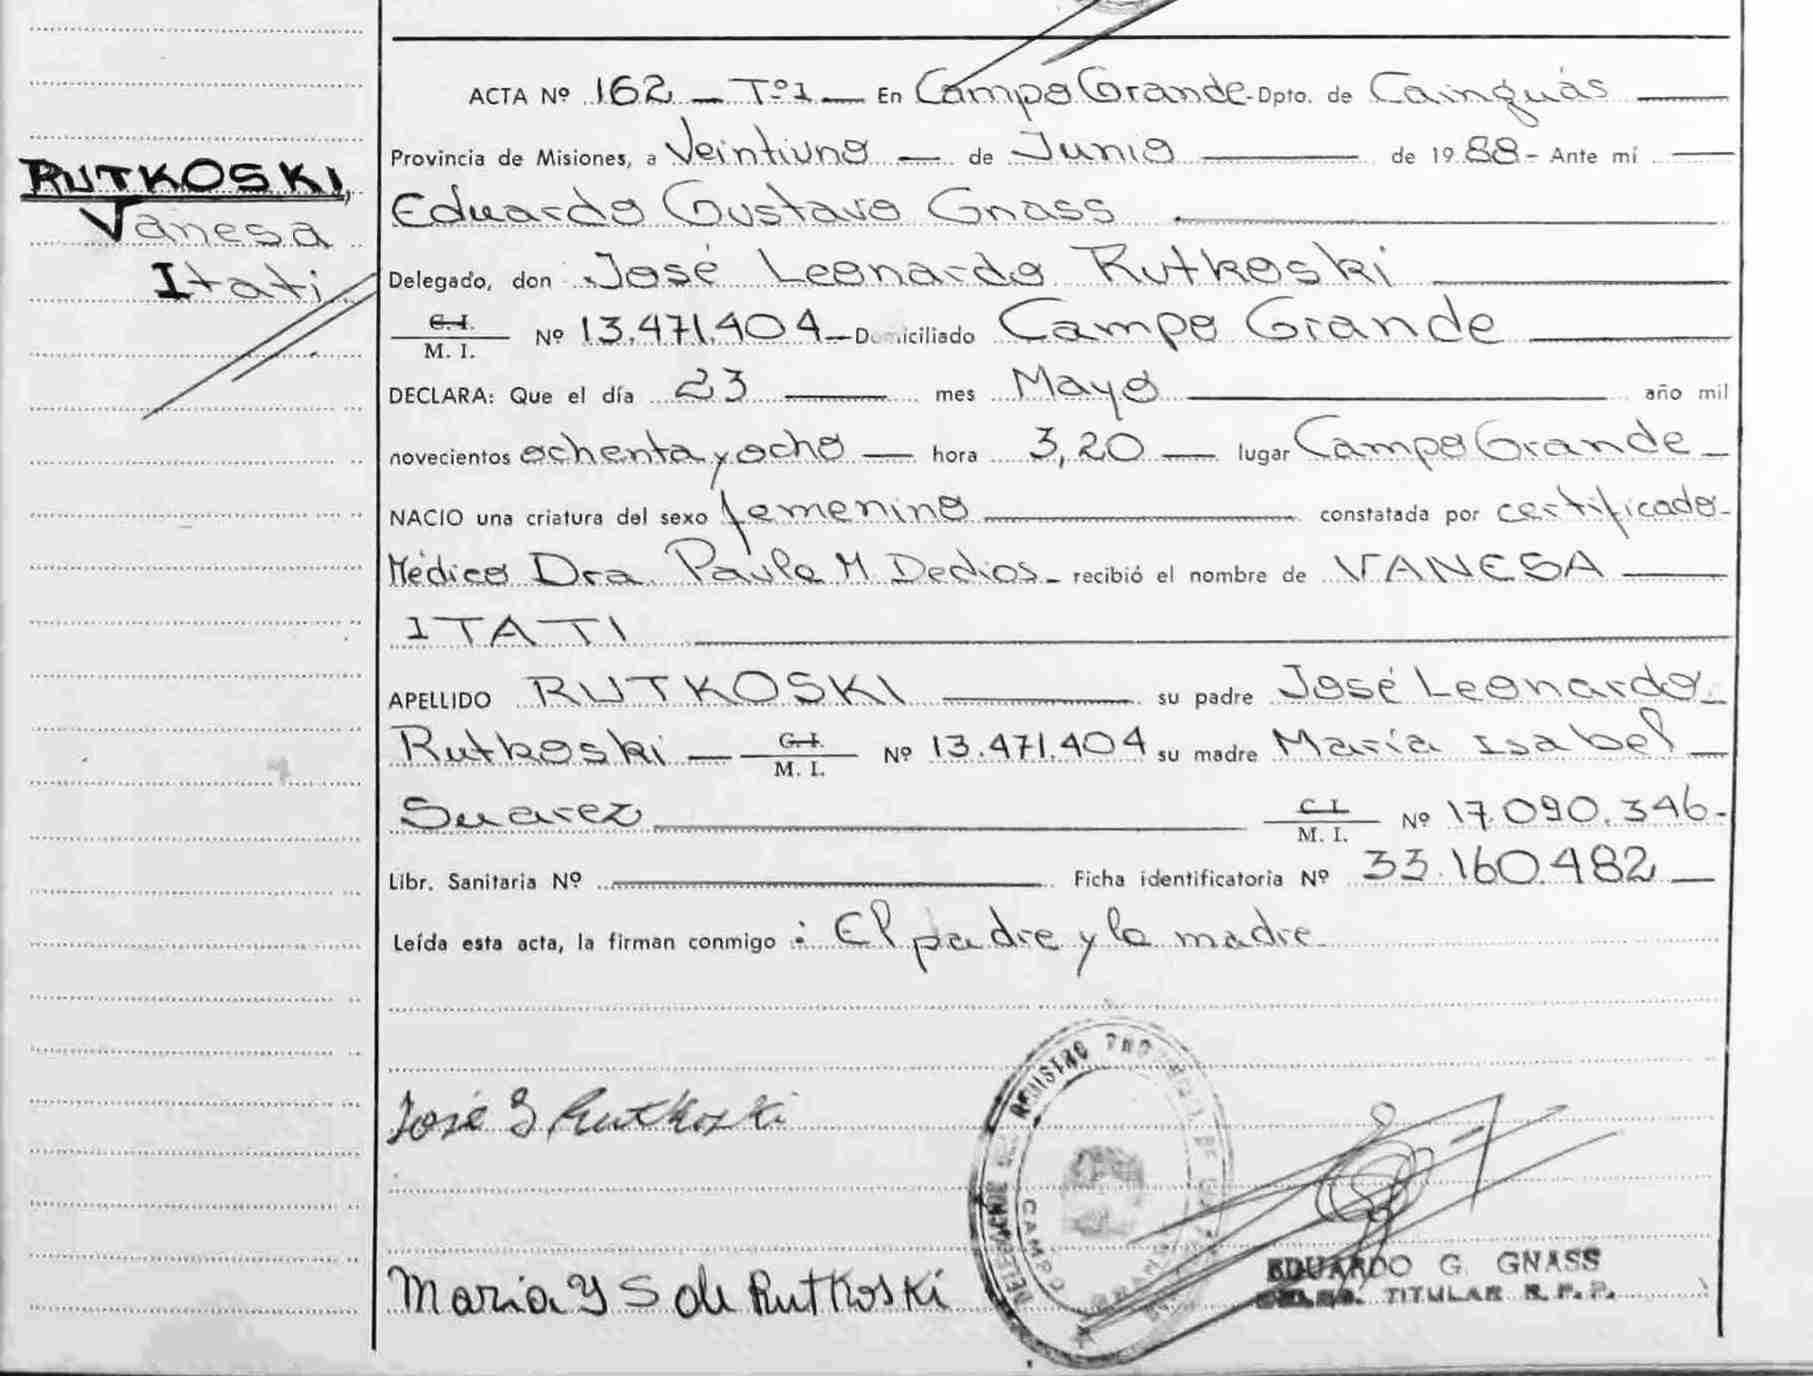 RUTKOSKI,
Vanesa
Itati
ACTA Nº 162 — Tº1 — En Campo Grande - Dpto. de Cainguás
Provincia de Misiones, a Veintiuno — de Junio — de 1988 - Ante mí
Eduardo Gustavo Gnass
Delegado, don José Leonardo Rutkoski
C.I. / M. I. Nº 13.471.404 — Domiciliado Campo Grande
DECLARA: Que el día 23 — mes Mayo — año mil
novecientos ochenta y ocho — hora 3,20 — lugar Campo Grande —
NACIO una criatura del sexo femenino — constatada por certificado
Médico Dra. Paula M Dedios - recibió el nombre de VANESA
ITATI
APELLIDO RUTKOSKI — su padre José Leonardo
Rutkoski — C.I. / M. I. Nº 13.471.404 su madre María Isabel
Suarez — C.I. / M. I. Nº 17.090.346 -
Libr. Sanitaria Nº — Ficha identificatoria Nº 33.160.482 —
Leída esta acta, la firman conmigo : El padre y la madre
José L Rutkoski
Maria Y S de Rutkoski
REGISTRO DE
CAMPO GRANDE
EDUARDO G. GNASS
TITULAR R. P. P.